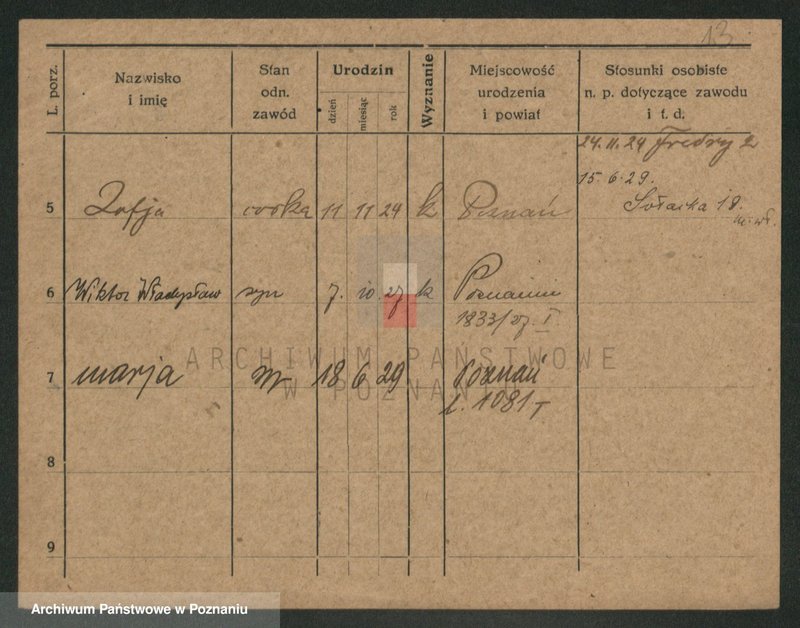 13
L. porz.
Nazwisko
i imię
Stan
odn.
zawód
Urodzin
dzień
miesiąc
rok
Wyznanie
Miejscowość
urodzenia
i powiat
Stosunki osobiste
n. p. dotyczące zawodu
i t. d.
24. 11. 24 Fredry 2
15. 6. 29.
Sołacka 18.
5 Zofja córka 11 11 24 k Poznań
6 Wiktor Władysław syn 7. 10. 27 k Poznaniu
1833/27. I.
7 Marja 18 6 29 Poznań
L. 1081 I
8
9
ARCHIWUM PAŃSTWOWE
W POZNANIU
Archiwum Państwowe w Poznaniu